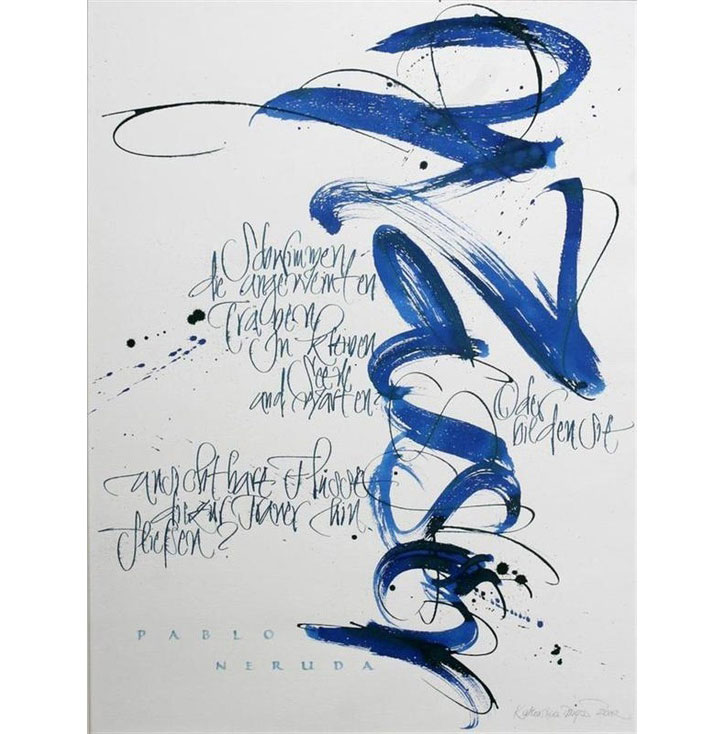 Schwimmen
die ungeweinten
Tränen
In kleinen
Seen
und warten?
Oder
bilden sie
unsichtbare Flüsse
die zur Trauer hin
fließen?
PABLO
NERUDA